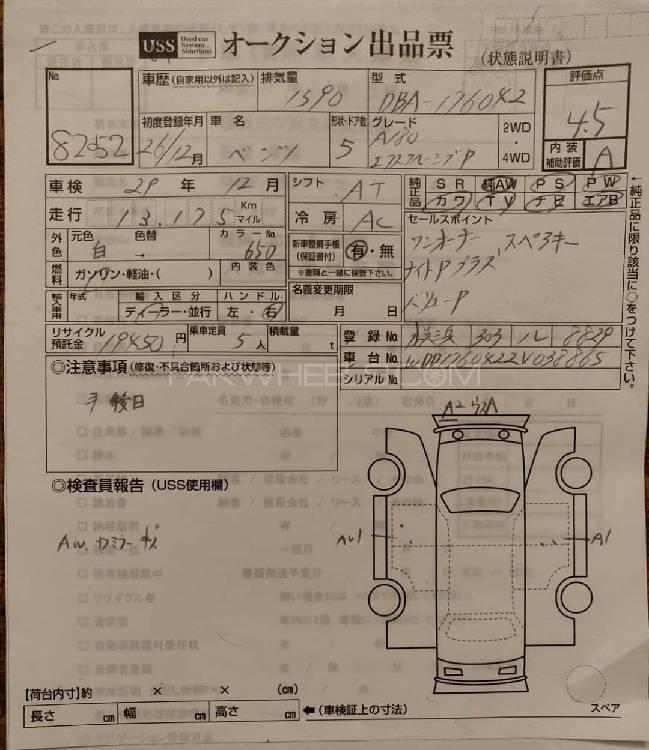 USS Used car System Solutions オークション 出品票 (状態説明書)
No. 8252
車歴 (自家用以外は記入)
排気量 1590
型式 DBA-176042
評価点 4.5
初度登録年月 26/12月
車名 ベンツ
形状・ドア数 5
グレード A180
2WD・4WD
内装補助評価 A
車検 29年 12月
シフト AT
純正品 SR 純AW PS PW
カワ TV ナビ エアB
走行 13,175 Km マイル
冷房 AC
セールスポイント
ワンオーナー、スペアキー
ナイトPプラス
バリューP
外色 元色 色替 カラーNo.
白 → 650
新車整備手帳(保証書付) 有・無
※書類と一緒に保管下さい。
燃料 ガソリン・軽油・( ) 内装色
名義変更期限
月 日
輸入車用 年式 輸入区分 ハンドル
ディーラー・並行 左・右
リサイクル預託金 19450円
乗車定員 5人
積載量 t
登録No. 横浜 303 ル 8829
車台No. WDD1760422V038865
シリアルNo.
←純正品に限り該当に○をつけて下さい。
◎注意事項 (修復・不具合箇所および状態等)
手 後日
◎検査員報告 (USS使用欄)
AW、カミラー キズ
A2
AW1
A1
【荷台内寸】約 × × (cm)
長さ cm 幅 cm 高さ cm
←(車検証上の寸法)
スペア
PAKWHEELS.COM